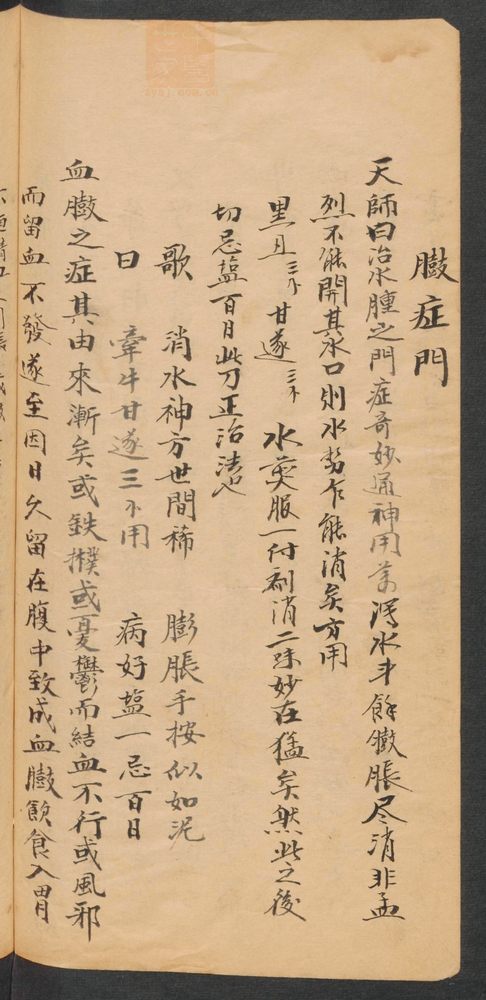 臌症門
天師曰治水腫之門症奇妙通神用藥瀉水斗餘臌脹尽消非孟
烈不能開其水口則水勢乍能消矣方用
黑丑三个甘遂三个 水煎服一付剷消二味妙在猛矣然此之後
切忌盐百日此乃正治法也
歌 消水神方世間稀 膨脹手按似如泥
曰 牽牛甘遂三个用 病好盐一忌百日
血臌之症其由來漸矣或鉄撲或憂鬱而結血不行或風邪
而留血不發遂至因日久留在腹中致成血臌飲食入胃